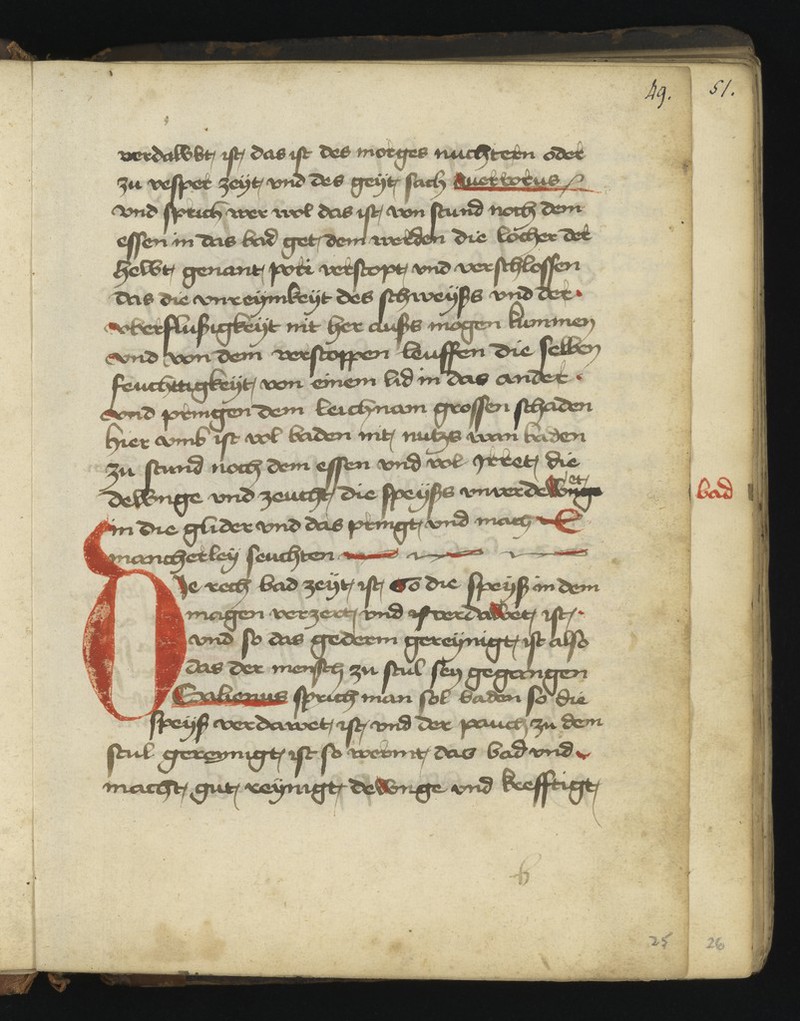 49.
51.
verdawet ist das ist des morges nuchtern oder
zu vesper zeyt vnd des geyt sach Auerrorus
vnd sprich wer wol das ist von stund noch dem
essen in das bad get dem werden die locher der
hewt genant pori verstopt vnd verschlossen
das die vnreymkeyt des schweyß vnd der
vberflußigkeyt nit her außs mogen kummen
vnd von dem verstoppen lauffen die selben
feuchttigkeyt von einem lid in das ander
vnd pringen dem leichnam grossen schaden
hier vmb ist vol baden nit nutzs wan baden
zu stund noch dem essen vnd vol Irret die
dewnge vnd zeucht die speyßs vnverdewet
in die glider vnd das pringt vnd mach
mancherley seuchten
bad
Die rech bad zeyt ist So die speyß in dem
magen verzert vnd verdawet ist
vnd so das gederm gereynigt ist also
das der mensch zu stul sey gegangen
Galienus sprich man sol baden so die
speyß verdawet ist vnd der pauch zu dem
stul gereynigt ist so wermt das bad vnd
macht gut reynigt dewnge vnd krefftigt
b
25
26